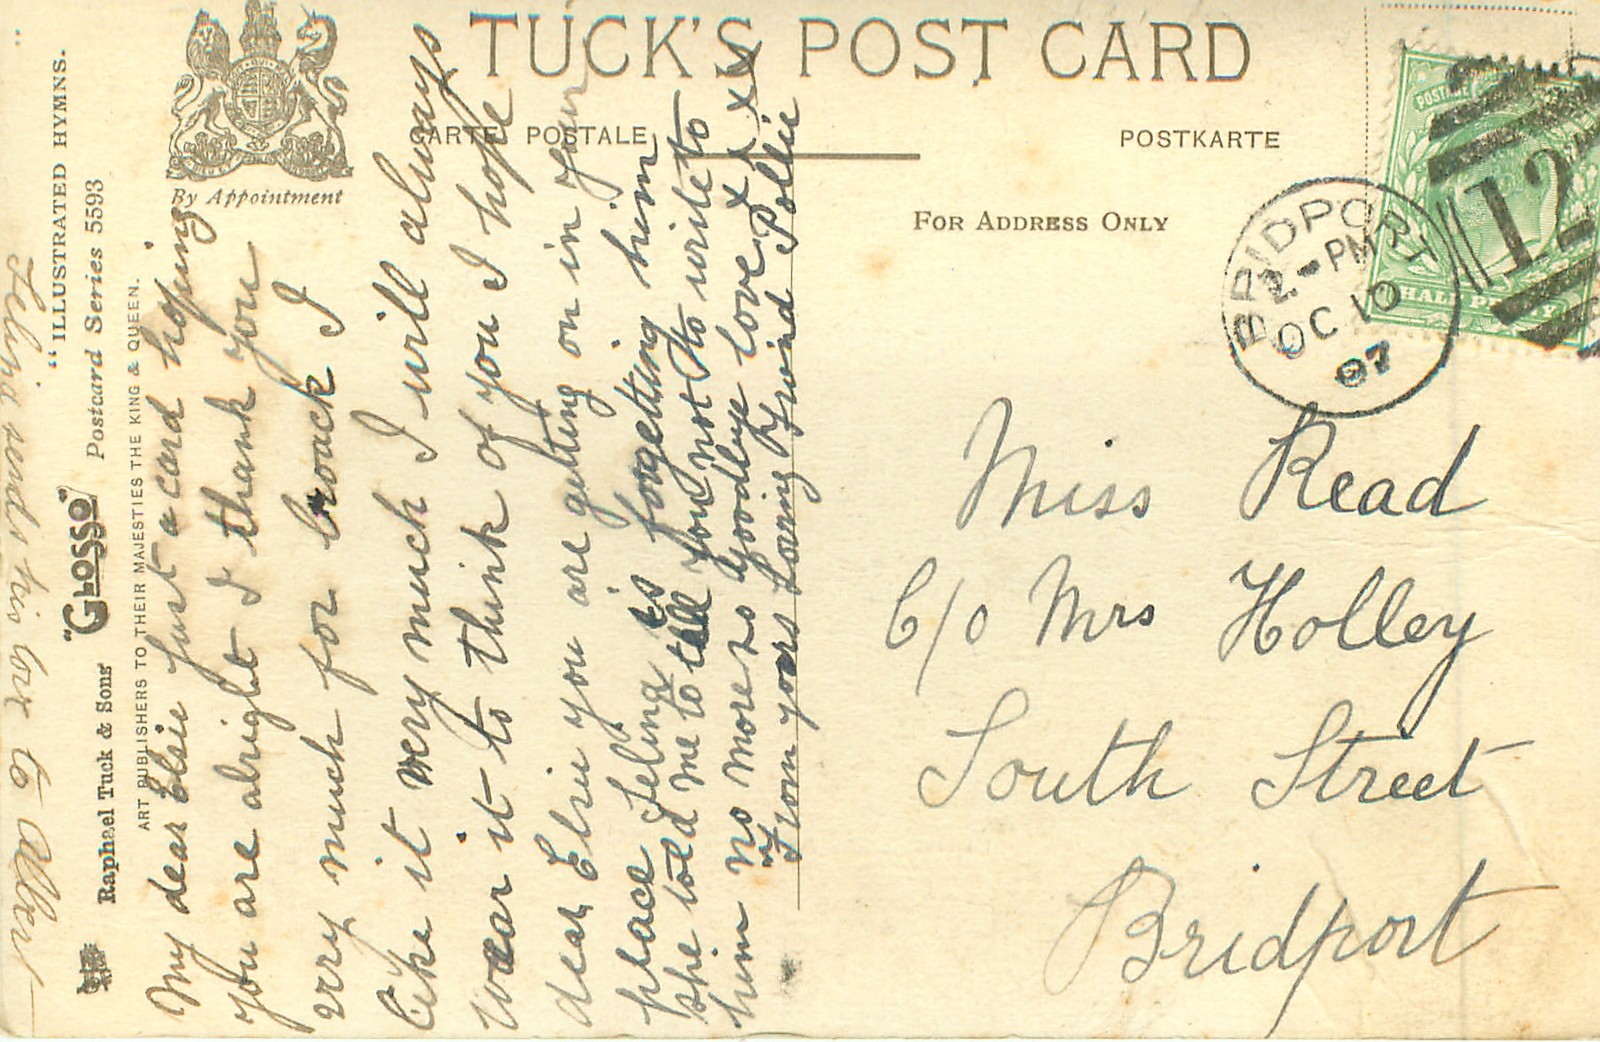 TUCK'S POST CARD
CARTE POSTALE
POSTKARTE
FOR ADDRESS ONLY
By Appointment
"ILLUSTRATED HYMNS.
Postcard Series 5593
Raphael Tuck & Sons' "GLOSSO"
ART PUBLISHERS TO THEIR MAJESTIES THE KING & QUEEN.
POSTAGE
HALF PENNY
12
BRIDPORT
2-PM
OC 10
07
My dear Elsie just a card hoping
you are alright I thank you
very much for broack I
like it very much I will always
wear it to think of you I hope
dear Elsie you are getting on in your
place felina is forgetting him
she told me to tell you not to write to
him no more so goodbye love x x x x
From yours Loving Friend Pollie
felina sends his love to Albert
Miss Read
C/o Mrs Holley
South Street
Bridport